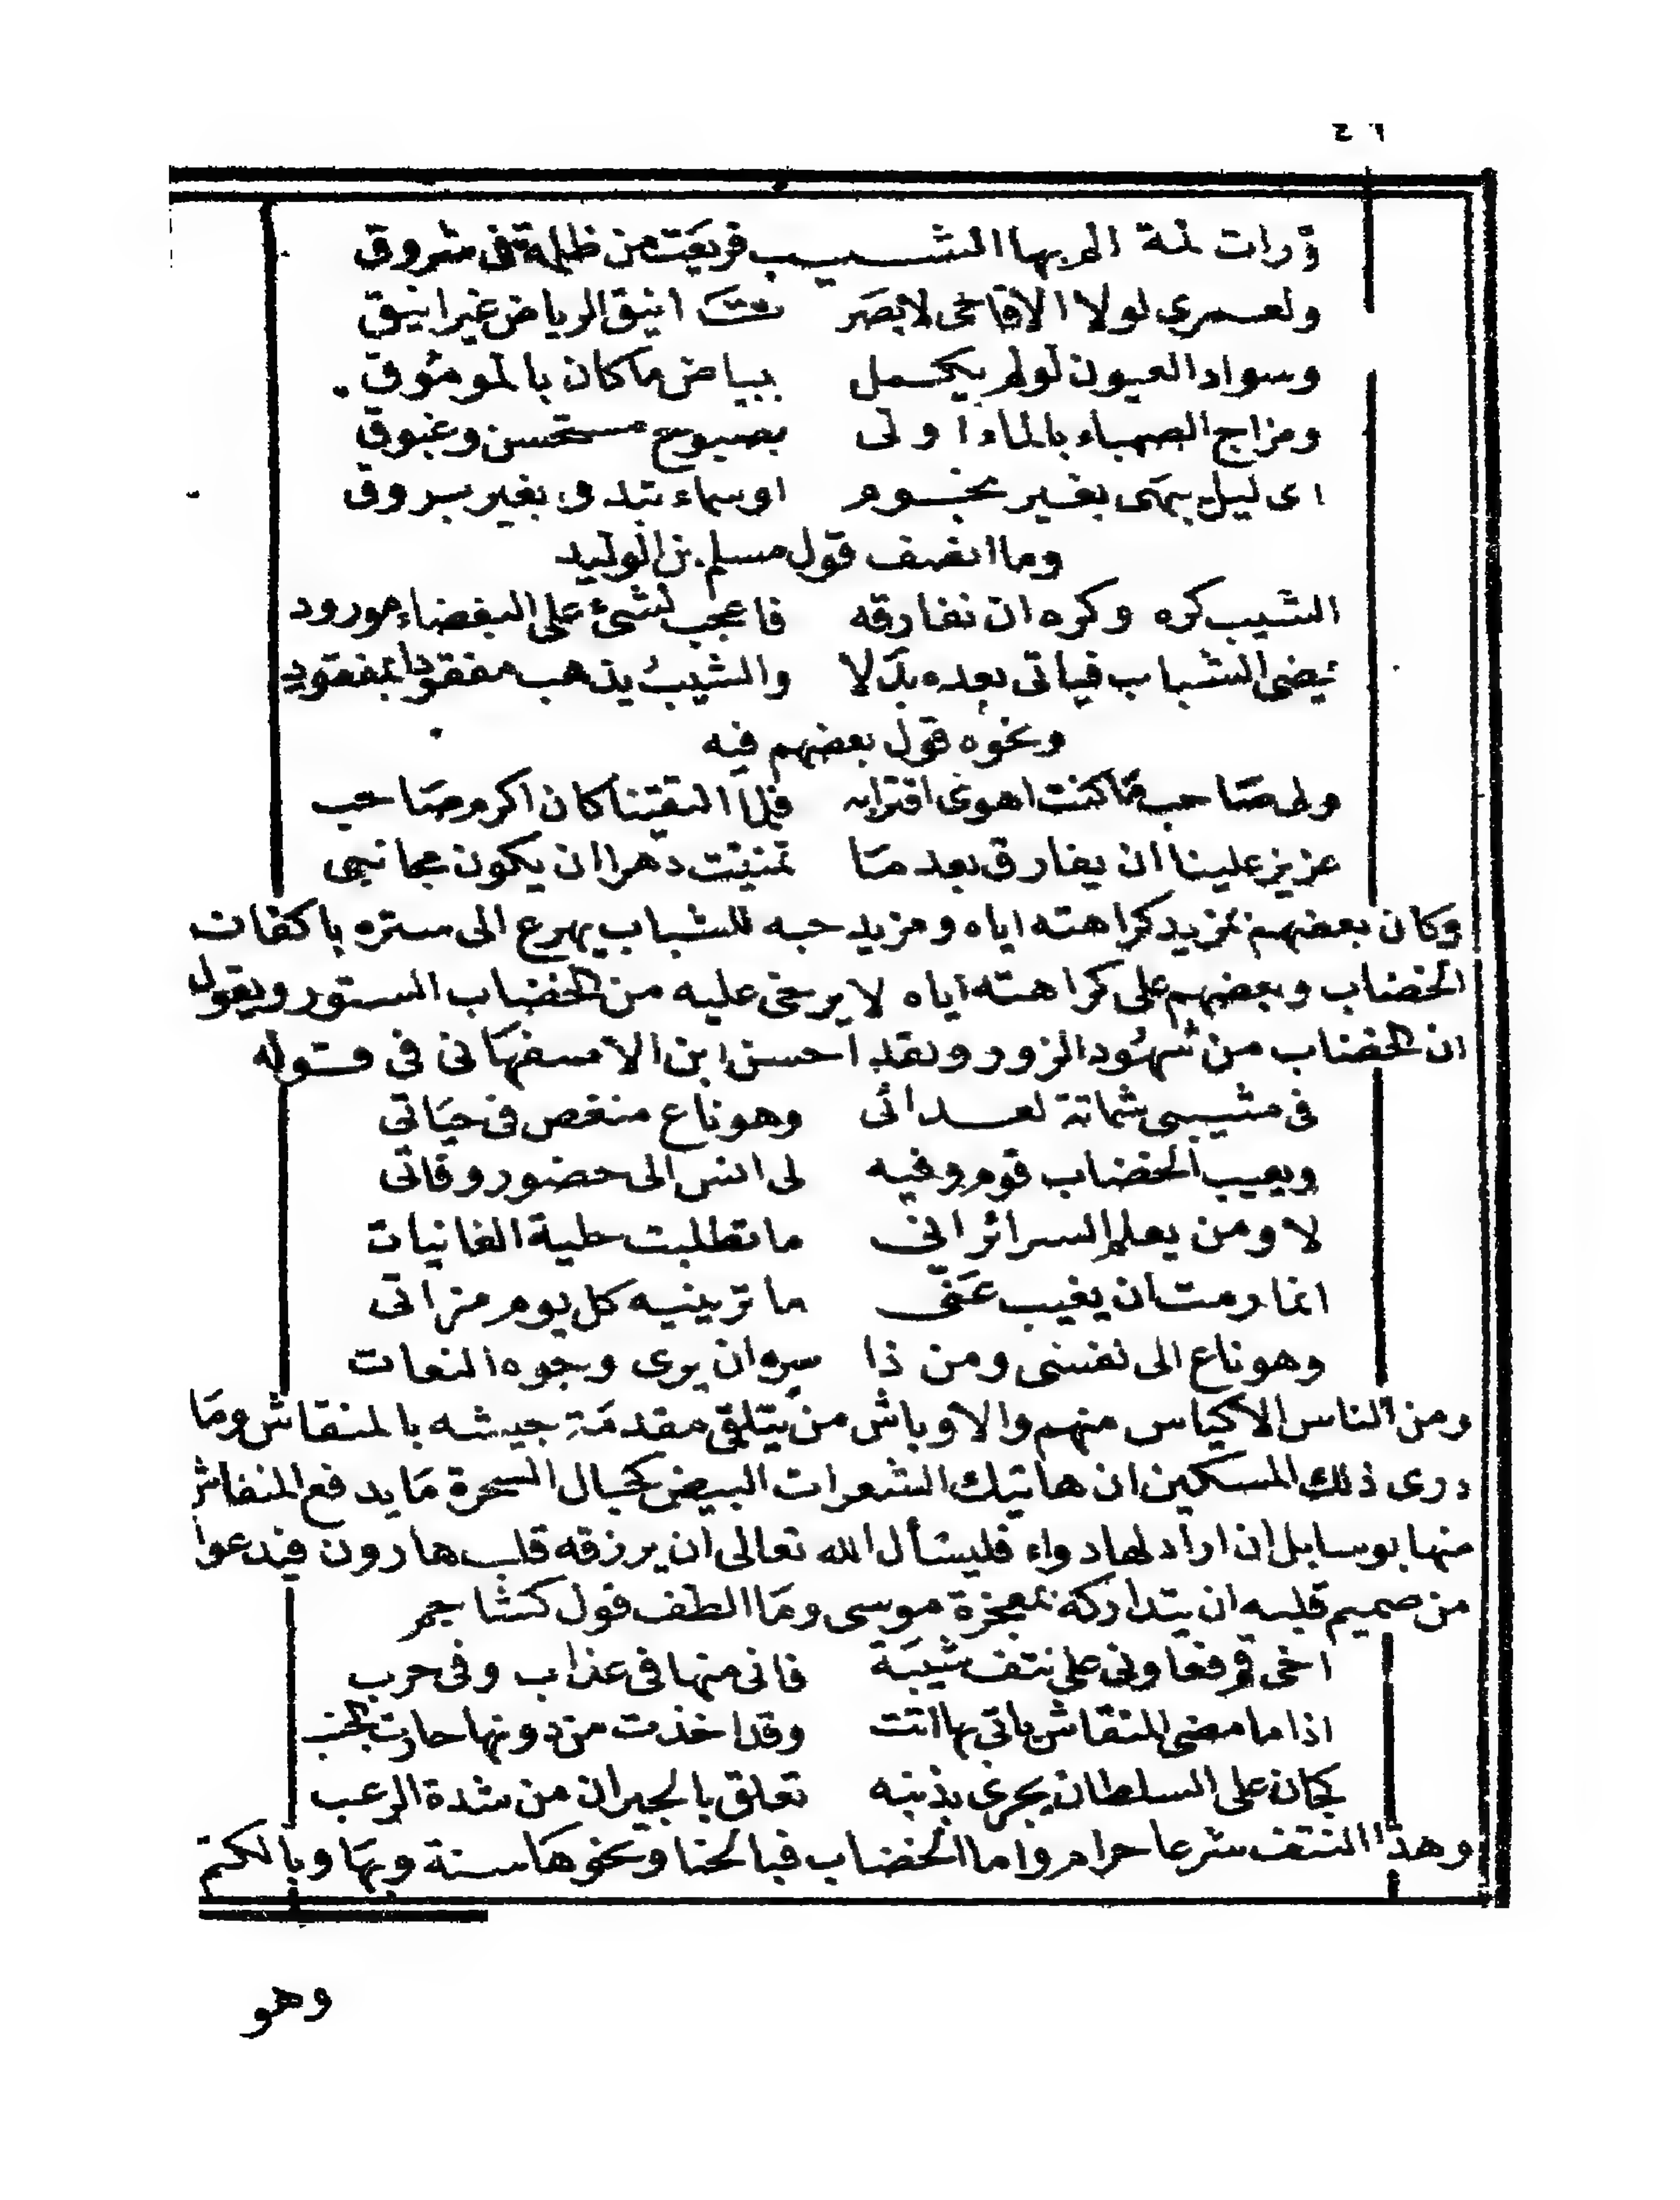 ٤٦
ورات لمة الم بها الشيب فريعت من ظلمة فى شروق
ولعمري لولا الاقاحى لابصرت انيق الرياض غير انيق
وسواد العيون لو لم يكمل ببياض ما كان بالموموق
ومزاج الصهباء بالماء اولى بصبوح مستحسن وغبوق
اى ليل يبهى بغير نجوم او سماء تبدو بغير بروق
وما انصف قول مسلم بن الوليد
الشيب كره وكره ان نفارقه فاعجب لشئ على البغضاء مورود
يمضى الشباب فياتى بعده بدلا والشيب يذهب مفقودا بمفقود
ونحوه قول بعضهم فيه
ولى صاحب ما كنت اهوى اقترابه فلما التقينا كان اكرم صاحب
عزيز علينا ان يفارق بعد ما تمنيت دهرا ان يكون مجانبى
وكان بعضهم لمزيد كراهته اياه ومزيد حبه للشباب يهرع الى ستره باكفان
الخضاب وبعضهم على كراهته اياه لا يرخى عليه من الخضاب الستور ويقول
ان الخضاب من شهود الزور ولقد احسن ابن الاصفهانى فى قوله
فى مشيبى شماتة لعدائى وهو ناع منغص فى حياتى
ويعيب الخضاب قوم وفيه لى انس الى حضور وفاتى
لا ومن يعلم السرائر انى ما تطلبت حلية الغانيات
انما رمت ان يغيب عنى ما ترينيه كل يوم مراتى
وهو ناع الى نفسى ومن ذا سره ان يرى وجوه النعات
ومن الناس الاكياس منهم والاوباش من يتلقى مقدمة جيشه بالمنقاش وما
درى ذلك المسكين ان هاتيك الشعرات البيض كحبال السحرة ما يدفع المنقاش
منها بوسا بل ان اراد لها دواء فليسأل الله تعالى ان يرزقه قلب هارون فيدعوا
من صميم قلبه ان يتداركه بمعجزة موسى وما الطف قول كشاجم
اخى قم فعاونى على نتف شيبة فانى منها فى عذاب وفى حرب
اذا ما مضى المنقاش ياتى بها اتت وقد اخذت من دونها جارت الجنب
كجان على السلطان يجرى بذنبه تعلق بالجيران من شدة الرعب
وهذا النتف شرعا حرام واما الخضاب فبالحنا ونحوها سنة وبها وبالكتم
وهو